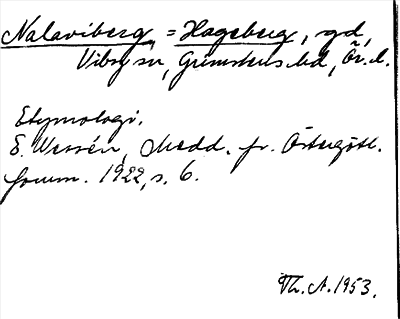 Nalaviberg, = Hageberg, gd,
Viby sn, Grimstens hd, Ör. l.
Etymologi.
E. Wessén, Medd. fr. Östergötl.
fornm. 1922, s. 6.
Th. A. 1953.